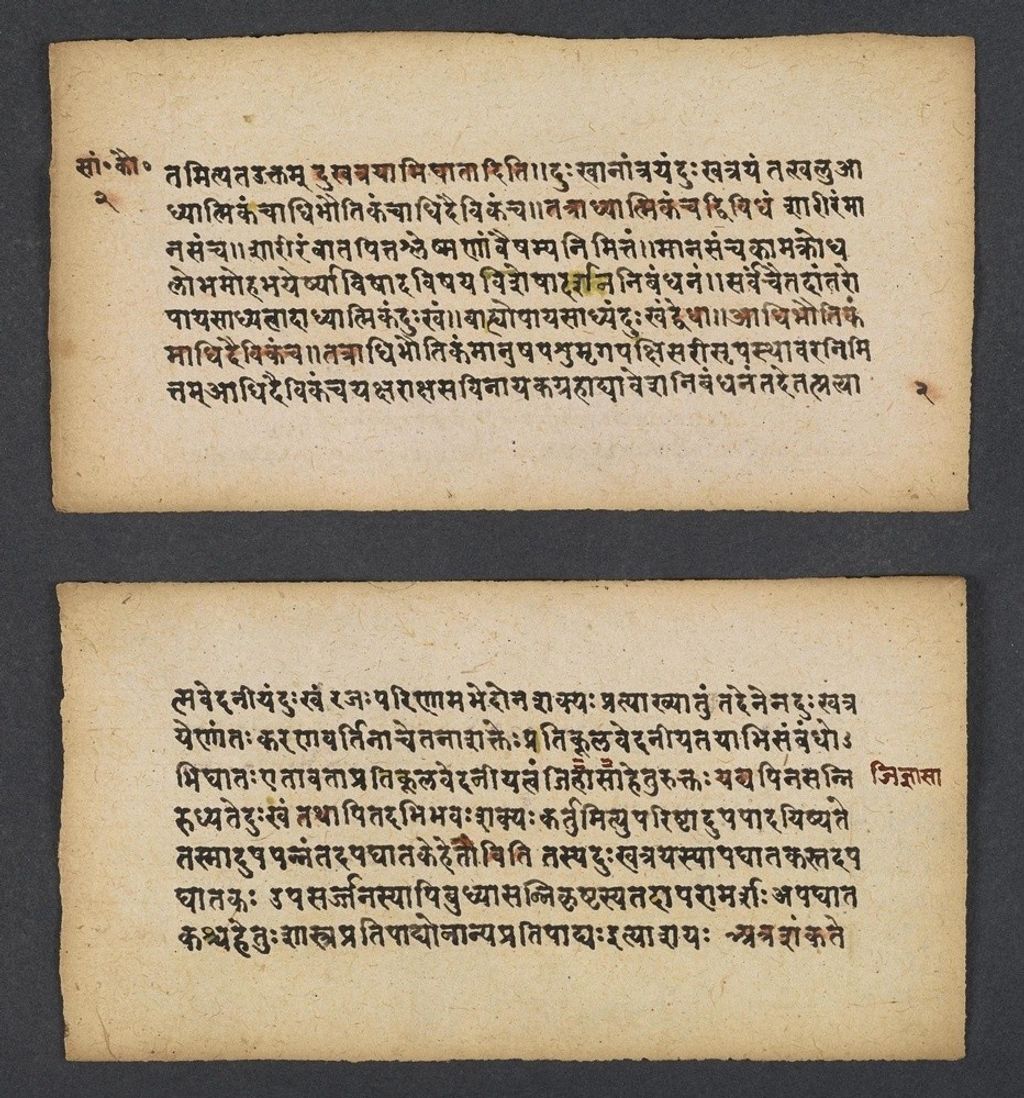 सां॰कौ॰
२
तमित्यतउक्तम् दुखत्रयाभिघातादिति॥दुःखानांत्रयंदुःखत्रयं तत्खलुआ
ध्यात्मिकंचाधिभौतिकंचाधिदैविकंच॥तत्राध्यात्मिकंचद्विविधं शारीरंमा
नसंच॥शारीरंवातपित्तश्लेष्मणांवैषम्यनिमित्तं॥मानसंचकामक्रोध
लोभमोहभयेर्ष्याविषादविषयविशेषादर्शननिबंधनं॥सर्वंचैतदांतरो
पायसाध्यत्वादाध्यात्मिकंदुःखं॥बाह्योपायसाध्यंदुःखंद्वेधा॥आधिभौतिकं
माधिदैविकंच॥तत्राधिभौतिकंमानुषपशुमृगपक्षिसरीसृपस्थावरनिमि
त्तम्आधिदैविकंचयक्षराक्षसविनायकग्रहाद्यावेशनिबंधनंतदेतत्प्रत्या
२
त्मवेदनीयंदुःखं रजःपरिणामभेदोनशक्यः प्रत्याख्यातुं तदेनेनदुःखत्र
येणांतःकरणवर्तिनाचेतनाशक्तेःप्रतिकूलवेदनीयतयाभिसंबंधोऽ
भिघातःएतावताप्रतिकूलवेदनीयत्वंजिहासाहेतुरुक्तःयद्यपिनसन्नि
जिज्ञासा
रुध्यतेदुःखं तथापितदभिभवःशक्यःकर्तुमित्युपरिष्टादुपपादयिष्यते
तस्मादुपपन्नंतदपघातकेहेताविति तस्यदुःखत्रयस्यापघातकस्तदप
घातकः उपसर्ज्जनस्यापिबुध्यासन्निकृष्टस्यतदापरामर्शःअपघात
कश्चहेतुःशास्त्रप्रतिपाद्योनान्यप्रतिपाद्यःइत्याशयः अत्रशंकते